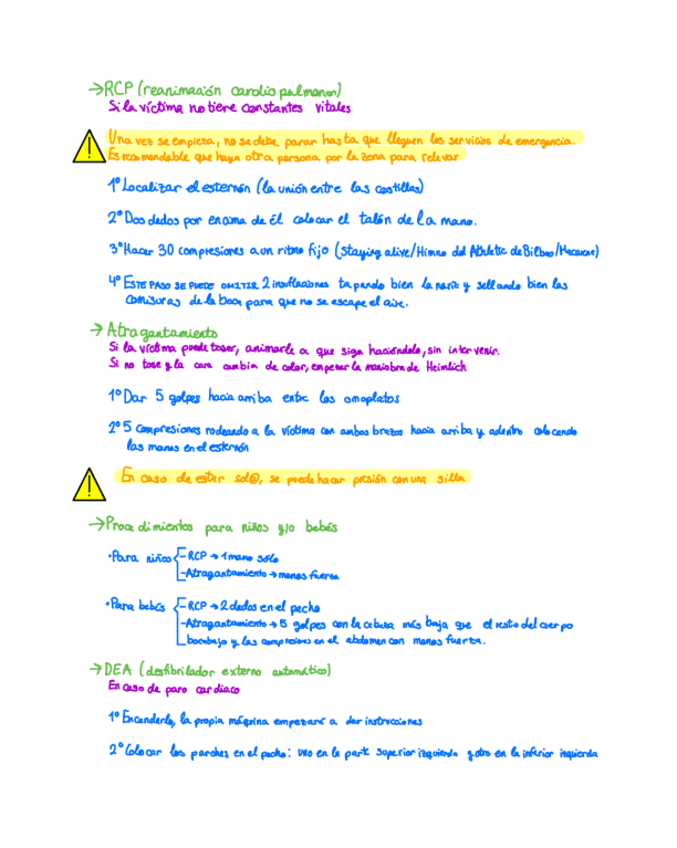 →RCP (reanimación cardio pulmonar)
Si la víctima no tiene constantes vitales
Una vez se empieza, no se debe parar hasta que lleguen los servicios de emergencia.
Es recomendable que haya otra persona por la zona para relevar
1º Localizar el esternón (la unión entre las costillas)
2º Dos dedos por encima de él colocar el talón de la mano.
3º Hacer 30 compresiones a un ritmo fijo (Staying alive/Himno del Athletic de Bilbao/Macarena)
4º ESTE PASO SE PUEDE OMITIR 2 insuflaciones tapando bien la nariz y sellando bien las
comisuras de la boca para que no se escape el aire.
→ Atragantamiento
Si la víctima puede toser, animarle a que siga haciéndolo, sin intervenir.
Si no tose y la cara cambia de color, empezar la maniobra de Heimlich
1º Dar 5 golpes hacia arriba entre los omoplatos
2º 5 compresiones rodeando a la víctima con ambos brazos hacia arriba y adentro colocando
las manos en el esternón
En caso de estar sol@, se puede hacer presión con una silla
→Procedimientos para niños y/o bebés
•Para niños
-RCP → 1 mano sólo
-Atragantamiento → menos fuerza
•Para bebés
-RCP → 2 dedos en el pecho
-Atragantamiento → 5 golpes con la cabeza más baja que el resto del cuerpo
bocabajo y las compresiones en el abdomen con menos fuerza.
→ DEA (desfibrilador externo automático)
En caso de paro cardiaco
1º Encenderlo, la propia máquina empezará a dar instrucciones
2º Colocar los parches en el pecho: uno en la parte superior izquierda y otro en la inferior izquierda